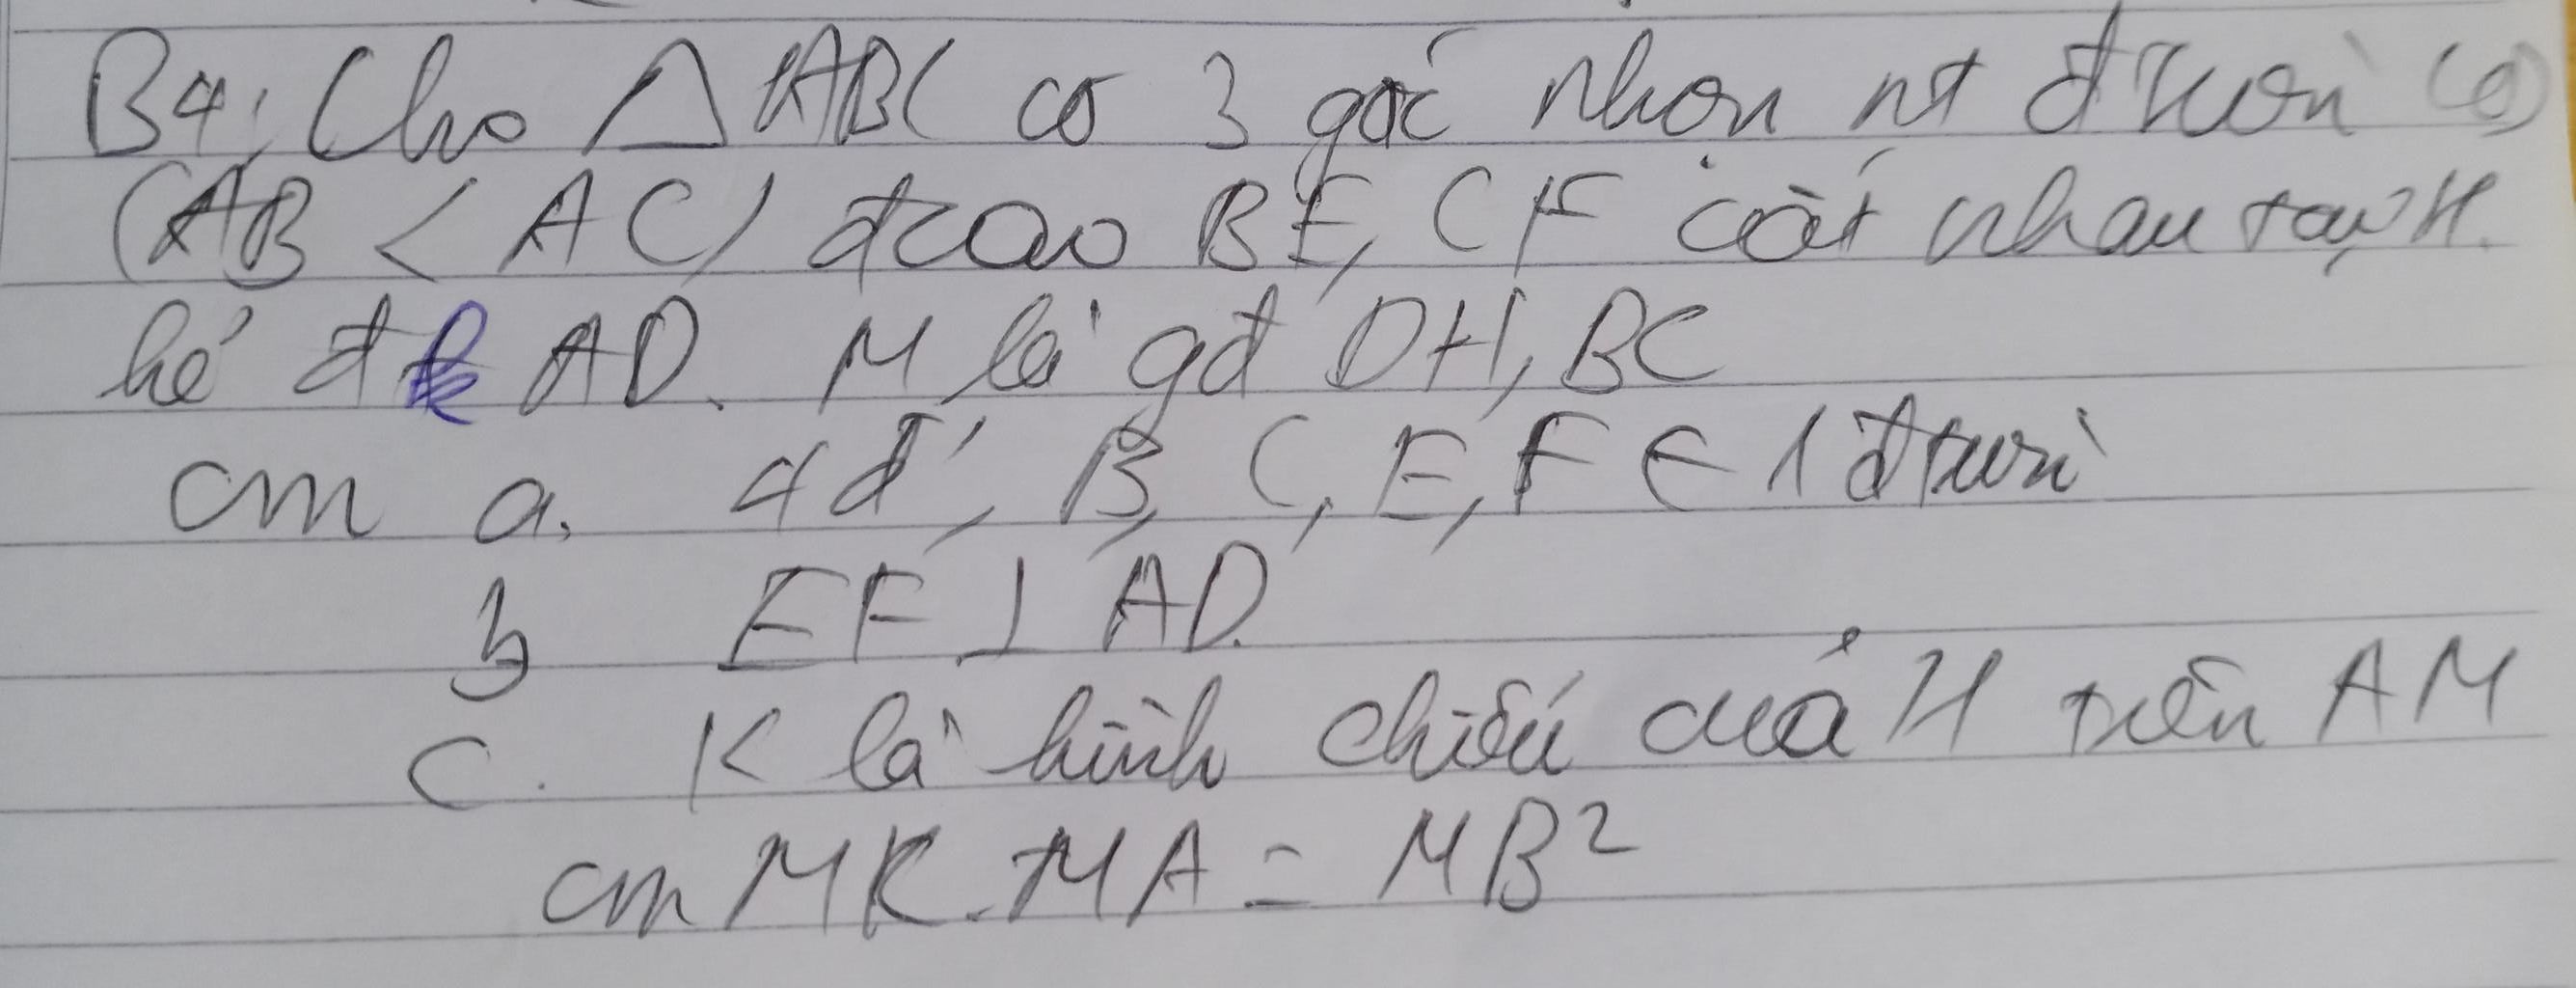 B4: Cho △ABC có 3 góc nhọn nt đtròn (O)
(AB < AC) đcao BE, CF cắt nhau tại H.
kẻ đk AD. M là gđ DH, BC
cm a. 4 đ', B, C, E, F ∈ 1 đtròn
b EF ⊥ AD.
c. K là hình chiếu của H trên AM
cm MK.MA = MB²